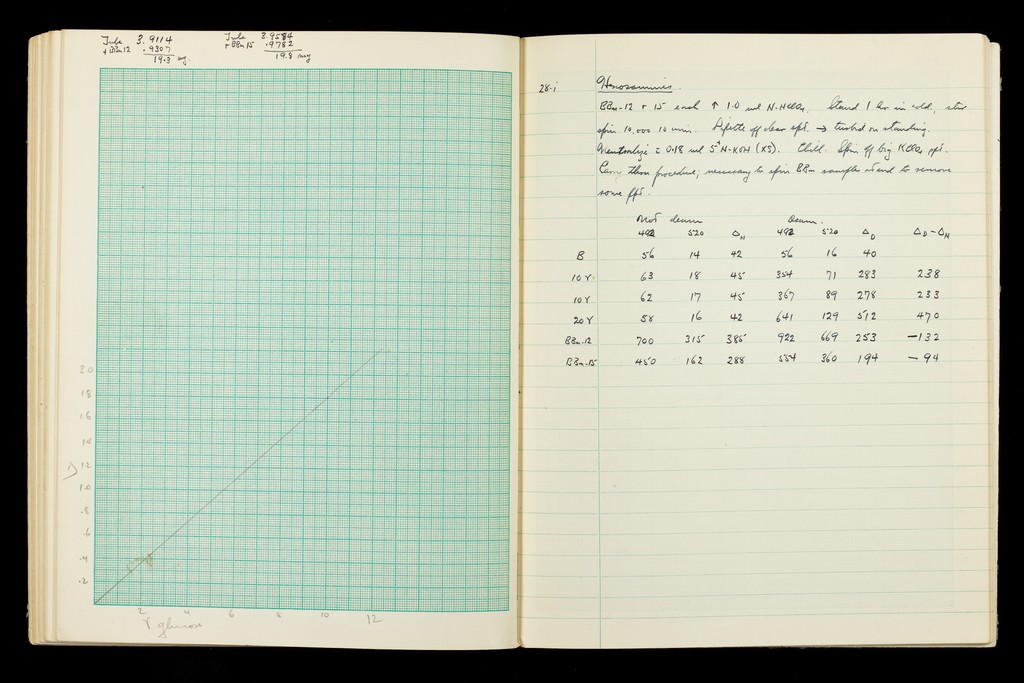 Tube 3.9114
+ BBm 12 .9307
19.3 mg
Tube 3.9584
+ BBm 15 .9782
19.8 mg
20
18
16
14
Δ 12
10
.8
.6
.4
.2
2 4 6 8 10 12
γ glucose
28-i Hexosamines
BBm-12 + 15 each ↑ 1.0 ml N-HClO4. Stand 1 hr in cold, stir
spin 10,000 10 min. Pipette off clear spt. → turbid on standing.
Neutralize c 0.18 ml 5N-KOH (XS). Chill. Spin off big KClO4 ppt.
procedure, necessary to spin BBm samples to remove
some ppt.
Not deam Deam.
492 520 ΔN 492 520 ΔD ΔD-ΔN
B 56 14 42 56 16 40
10γ 63 18 45 354 71 283 238
10γ 62 17 45 367 89 278 233
20γ 58 16 42 641 129 512 470
BBm-12 700 315 385 922 669 253 -132
BBm-15 450 162 288 554 360 194 -94